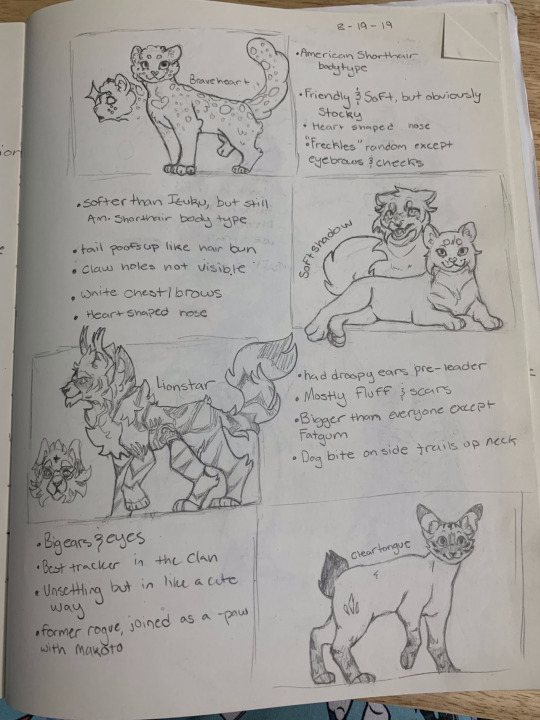 8-19-19
Braveheart
• American Shorthair
bodytype
• Friendly & Soft, but obviously
Stocky
• Heart shaped nose
• "Freckles" random except
eyebrows & cheeks
• softer than Izuku, but still
Am. Shorthair body type
• tail poofs up like hair bun
• Claw holes not visible
• White chest/brows
• Heart shaped nose
Softshadow
Lionstar
• had droopy ears pre-leader
• Mostly fluff & scars
• Bigger than everyone except
Fatgum
• Dog bite on side trails up neck
• Big ears & eyes
• Best tracker in the Clan
• Unsettling but in like a cute
way
• Former rogue, joined as a -paw
with Makoto
Cleartongue